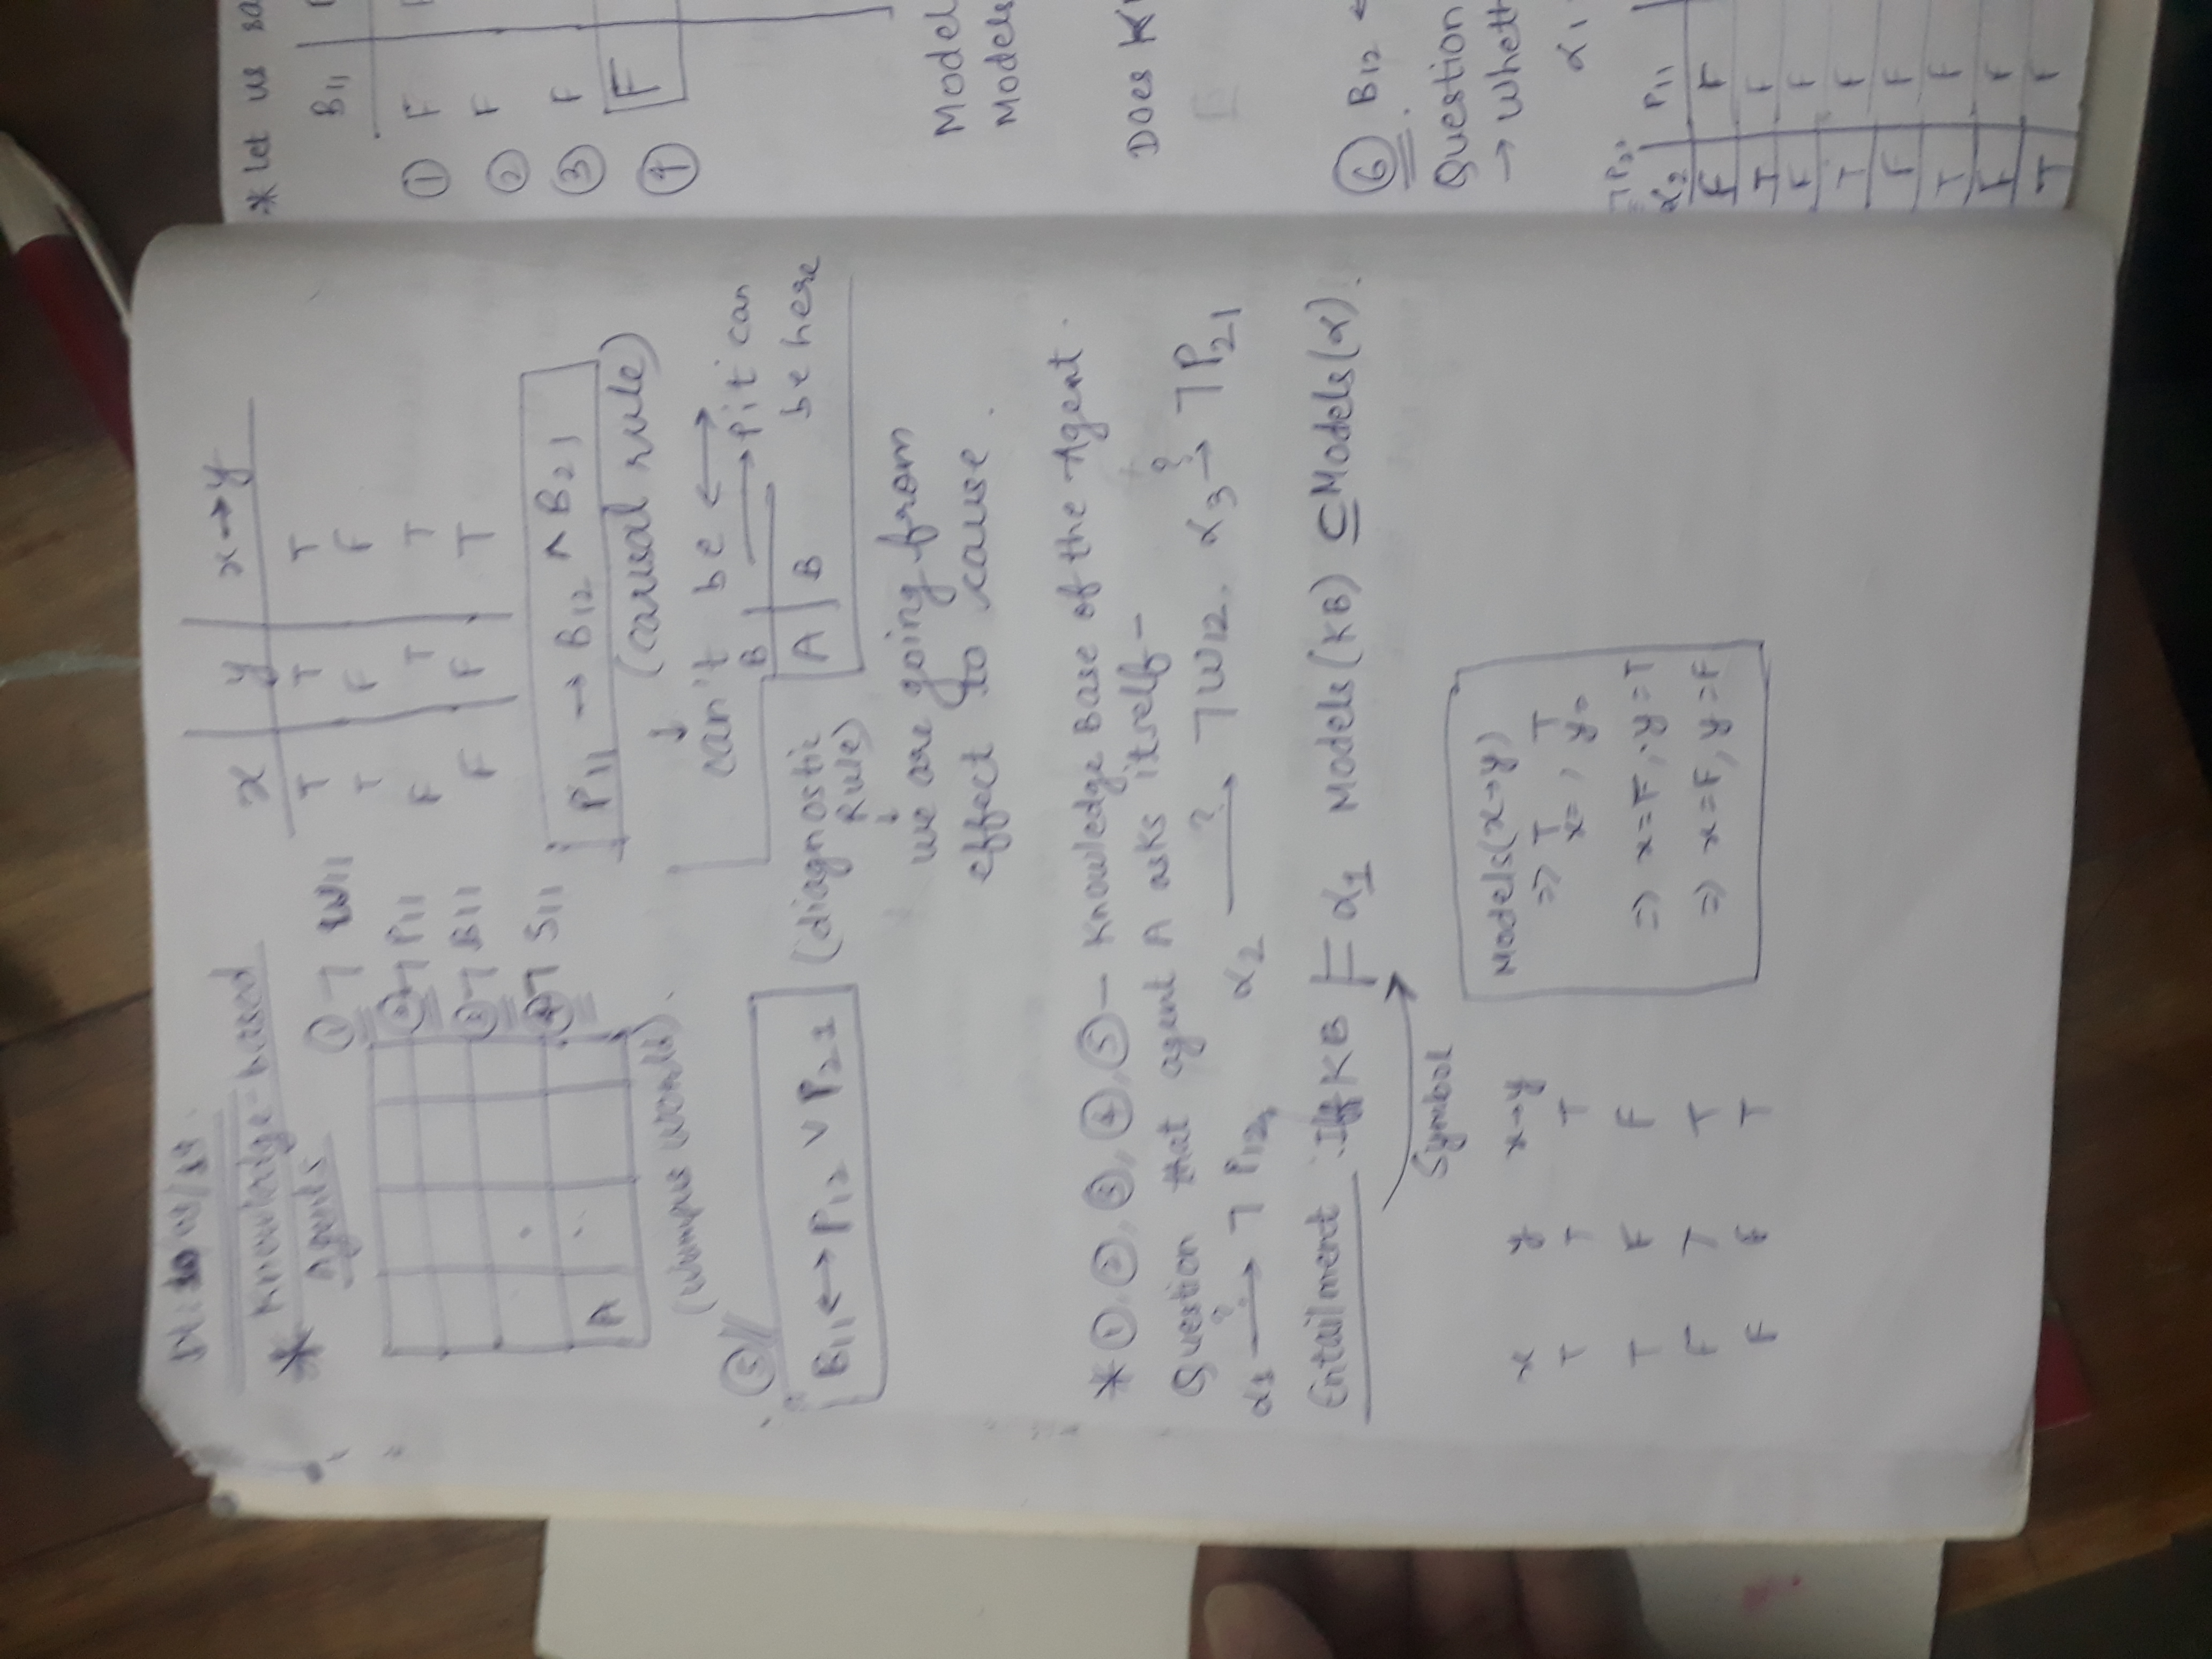 * Knowledge-based
Agents
① ¬ W11
② ¬ P11
③ ¬ B11
④ ¬ S11
A
(Wumpus World).
x y x→y
T T T
T F F
F T T
F F T
P11 → B12 ∧ B21
(causal rule)
↓
can't be ↔
B → Pit can
A B be here
⑤
B11 ↔ P12 ∨ P21 (diagnostic
Rule)
↓
we are going from
effect to cause.
* ①, ②, ③, ④, ⑤ — Knowledge Base of the Agent.
Question that agent A asks itself -
α1 —?→ ¬ P12, α2 —?→ ¬ W12. α3 —?→ ¬ P21
Entailment Iff KB ⊨ α1 Models(KB) ⊆ Models(α).
Symbol
x y x→y
T T T
T F F
F T T
F F T
Models(x→y)
=> T T
x= , y=
=> x=F, y=T
=> x=F, y=F
* Let us
B11
① F
② F
③ F
④ F
Model
Models
Does
⑥ B12
Question
→
α1
α2 P11
F F
T F
F F
T F
F F
T F
F F
T F